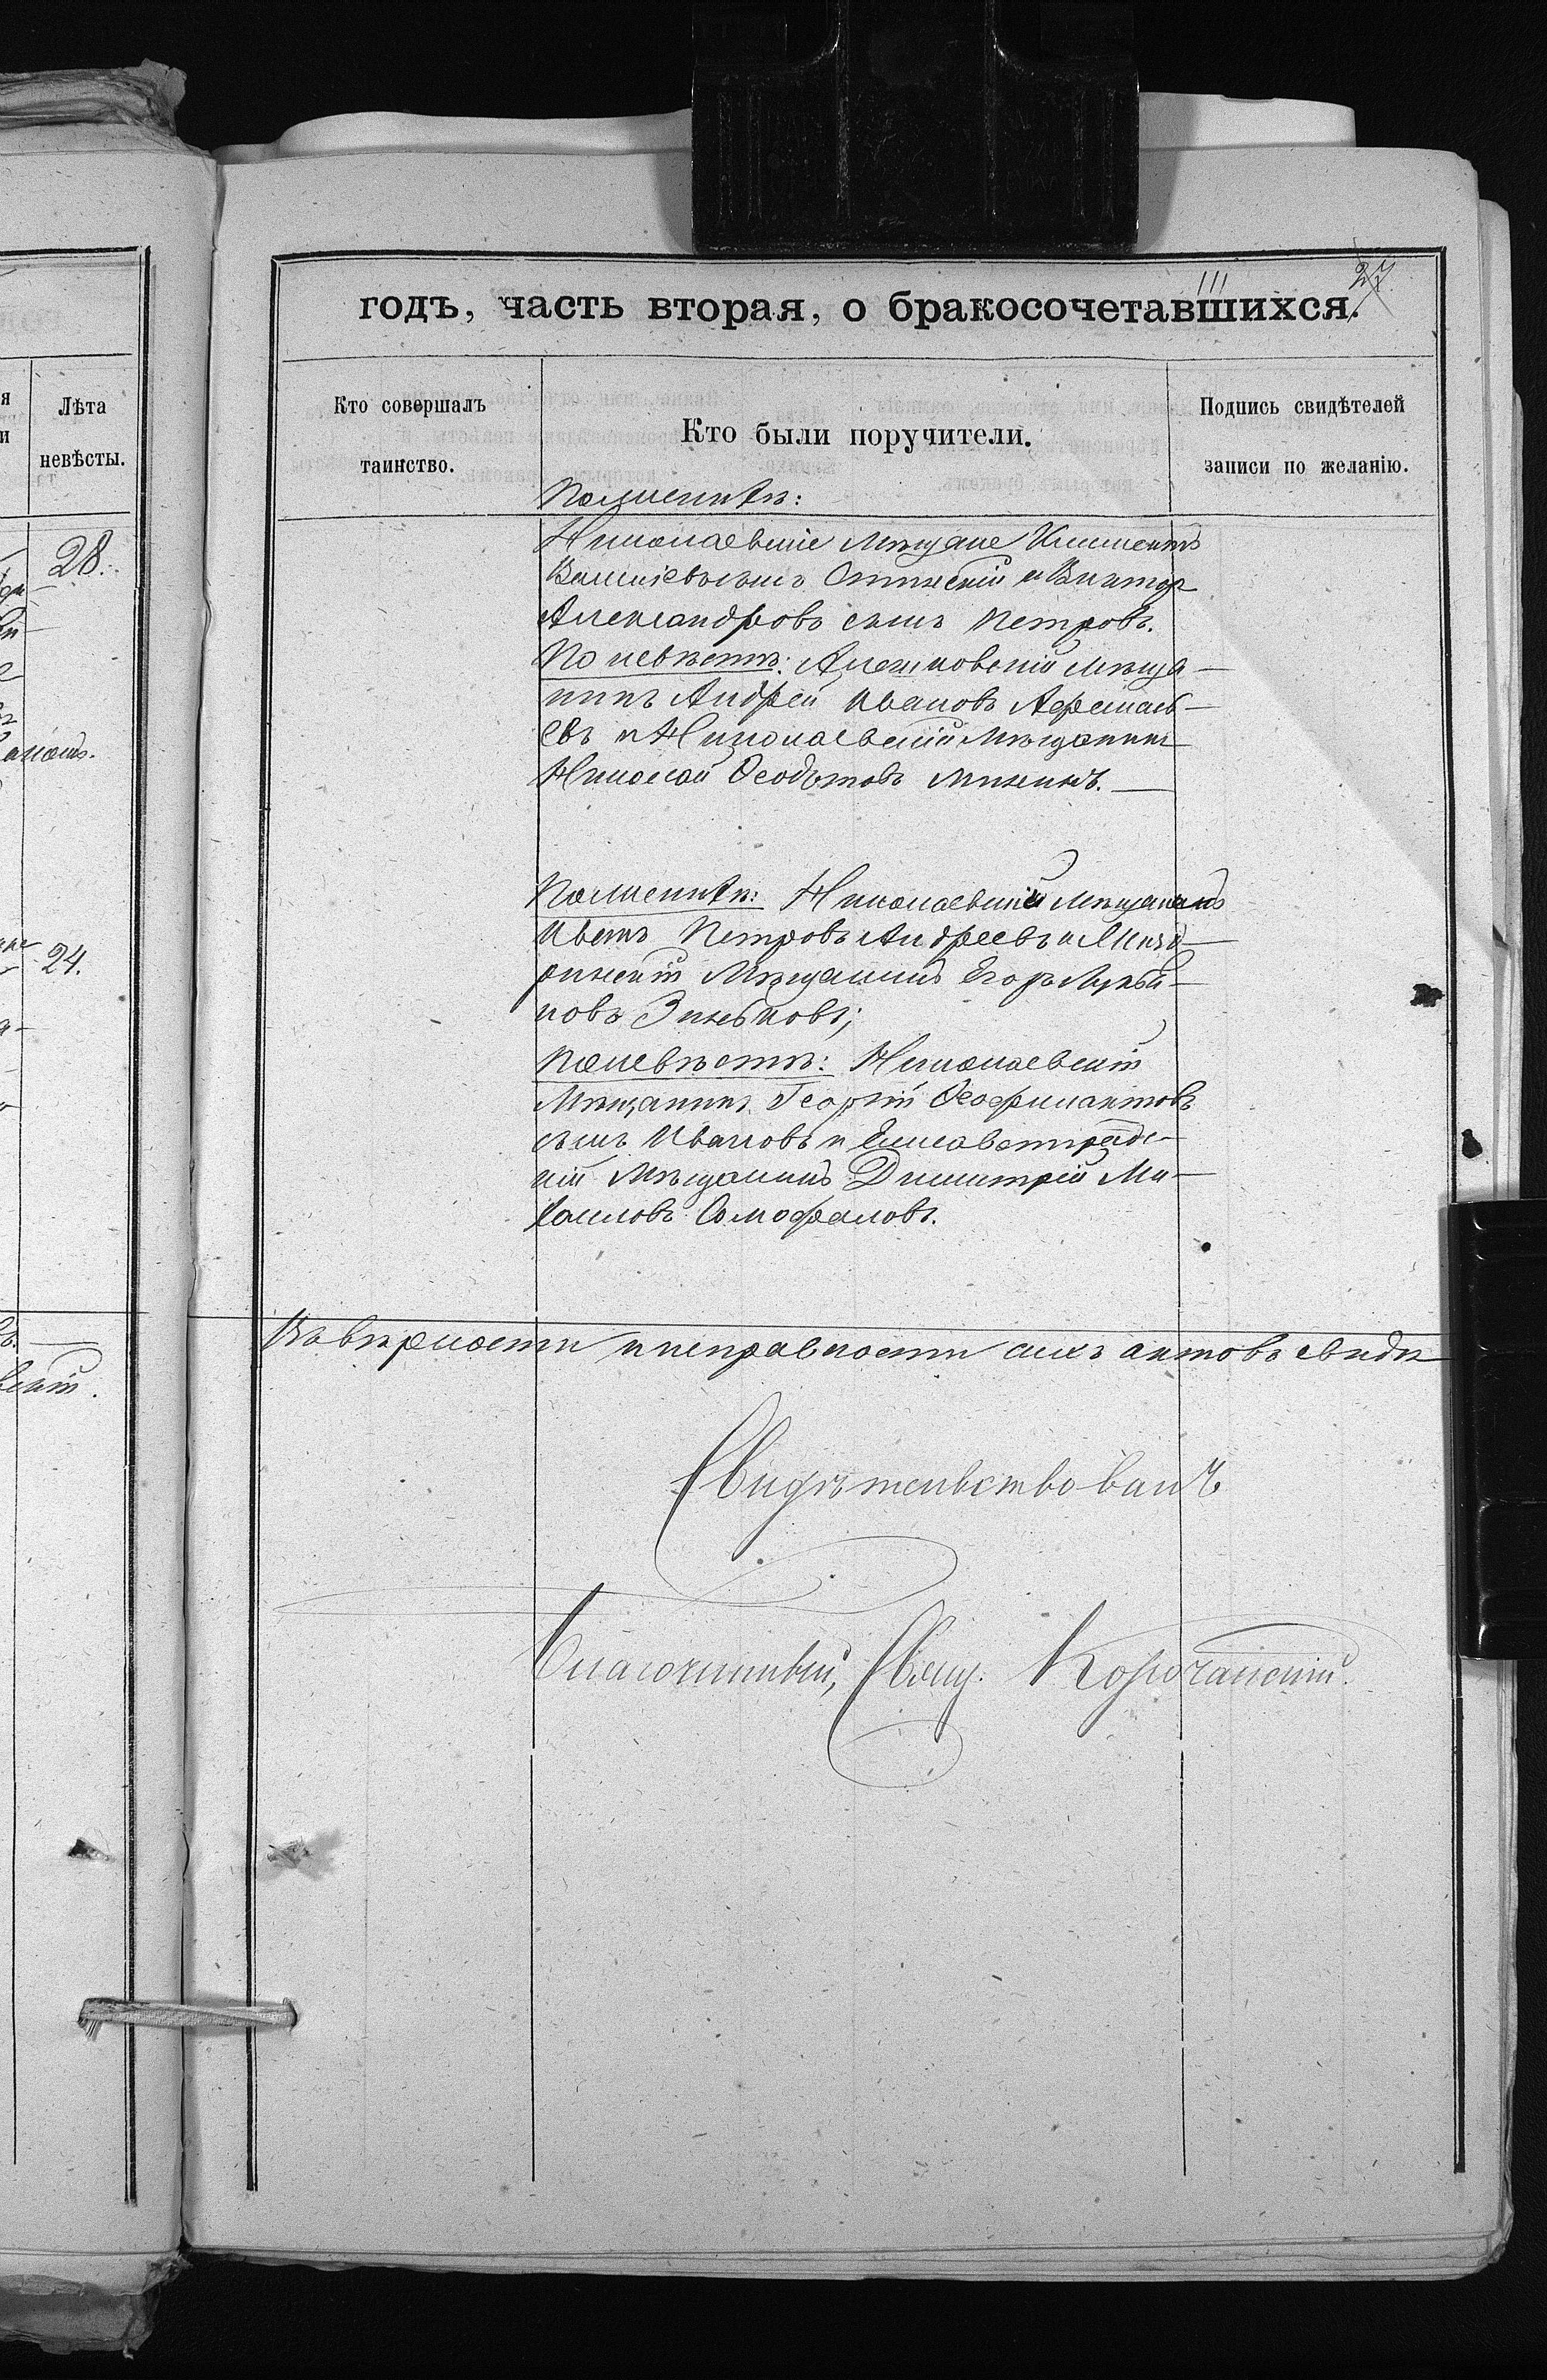 годъ, часть вторая, о бракосочетавшихся.
111
27
я
и
Лѣта
невѣсты.
Кто совершалъ
таинство.
Кто были поручители.
Подпись свидѣтелей
записи по желанію.
28.
24.
По женихѣ:
Николаевскіе мѣщане Климентъ
сынъ и Викторъ
Александровъ сынъ Петровъ.
По невѣстѣ: Алешковскій мѣща-
нинъ Андрей Ивановъ
евъ и Николаевскій мѣщанинъ
Николай Ѳеодотовъ
По женихѣ: Николаевскій мѣщанинъ
Иванъ Петровъ Андреевъ и
мѣщанинъ Егоръ Лукья-
новъ Зиньковъ;
По невѣстѣ: Николаевскій
мѣщанинъ Георгій Ѳеофилактовъ
сынъ Ивановъ и Елисаветградс-
кій мѣщанинъ Димитрій Ми-
хаиловъ
Въ вѣрности и исправности сихъ актовъ свидѣ
Свидѣтельствовалъ
Благочинный, Свящ. Корочанскій.